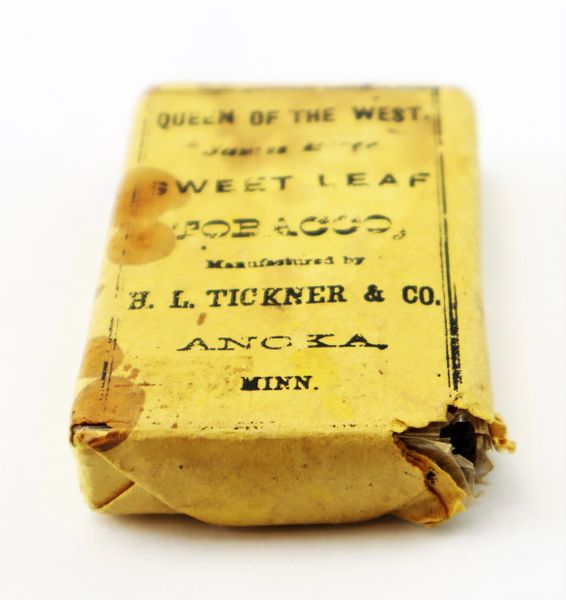 QUEEN OF THE WEST.
SWEET LEAF
TOBACCO,
Manufactured by
H. L. TICKNER & CO.
ANOKA,
MINN.